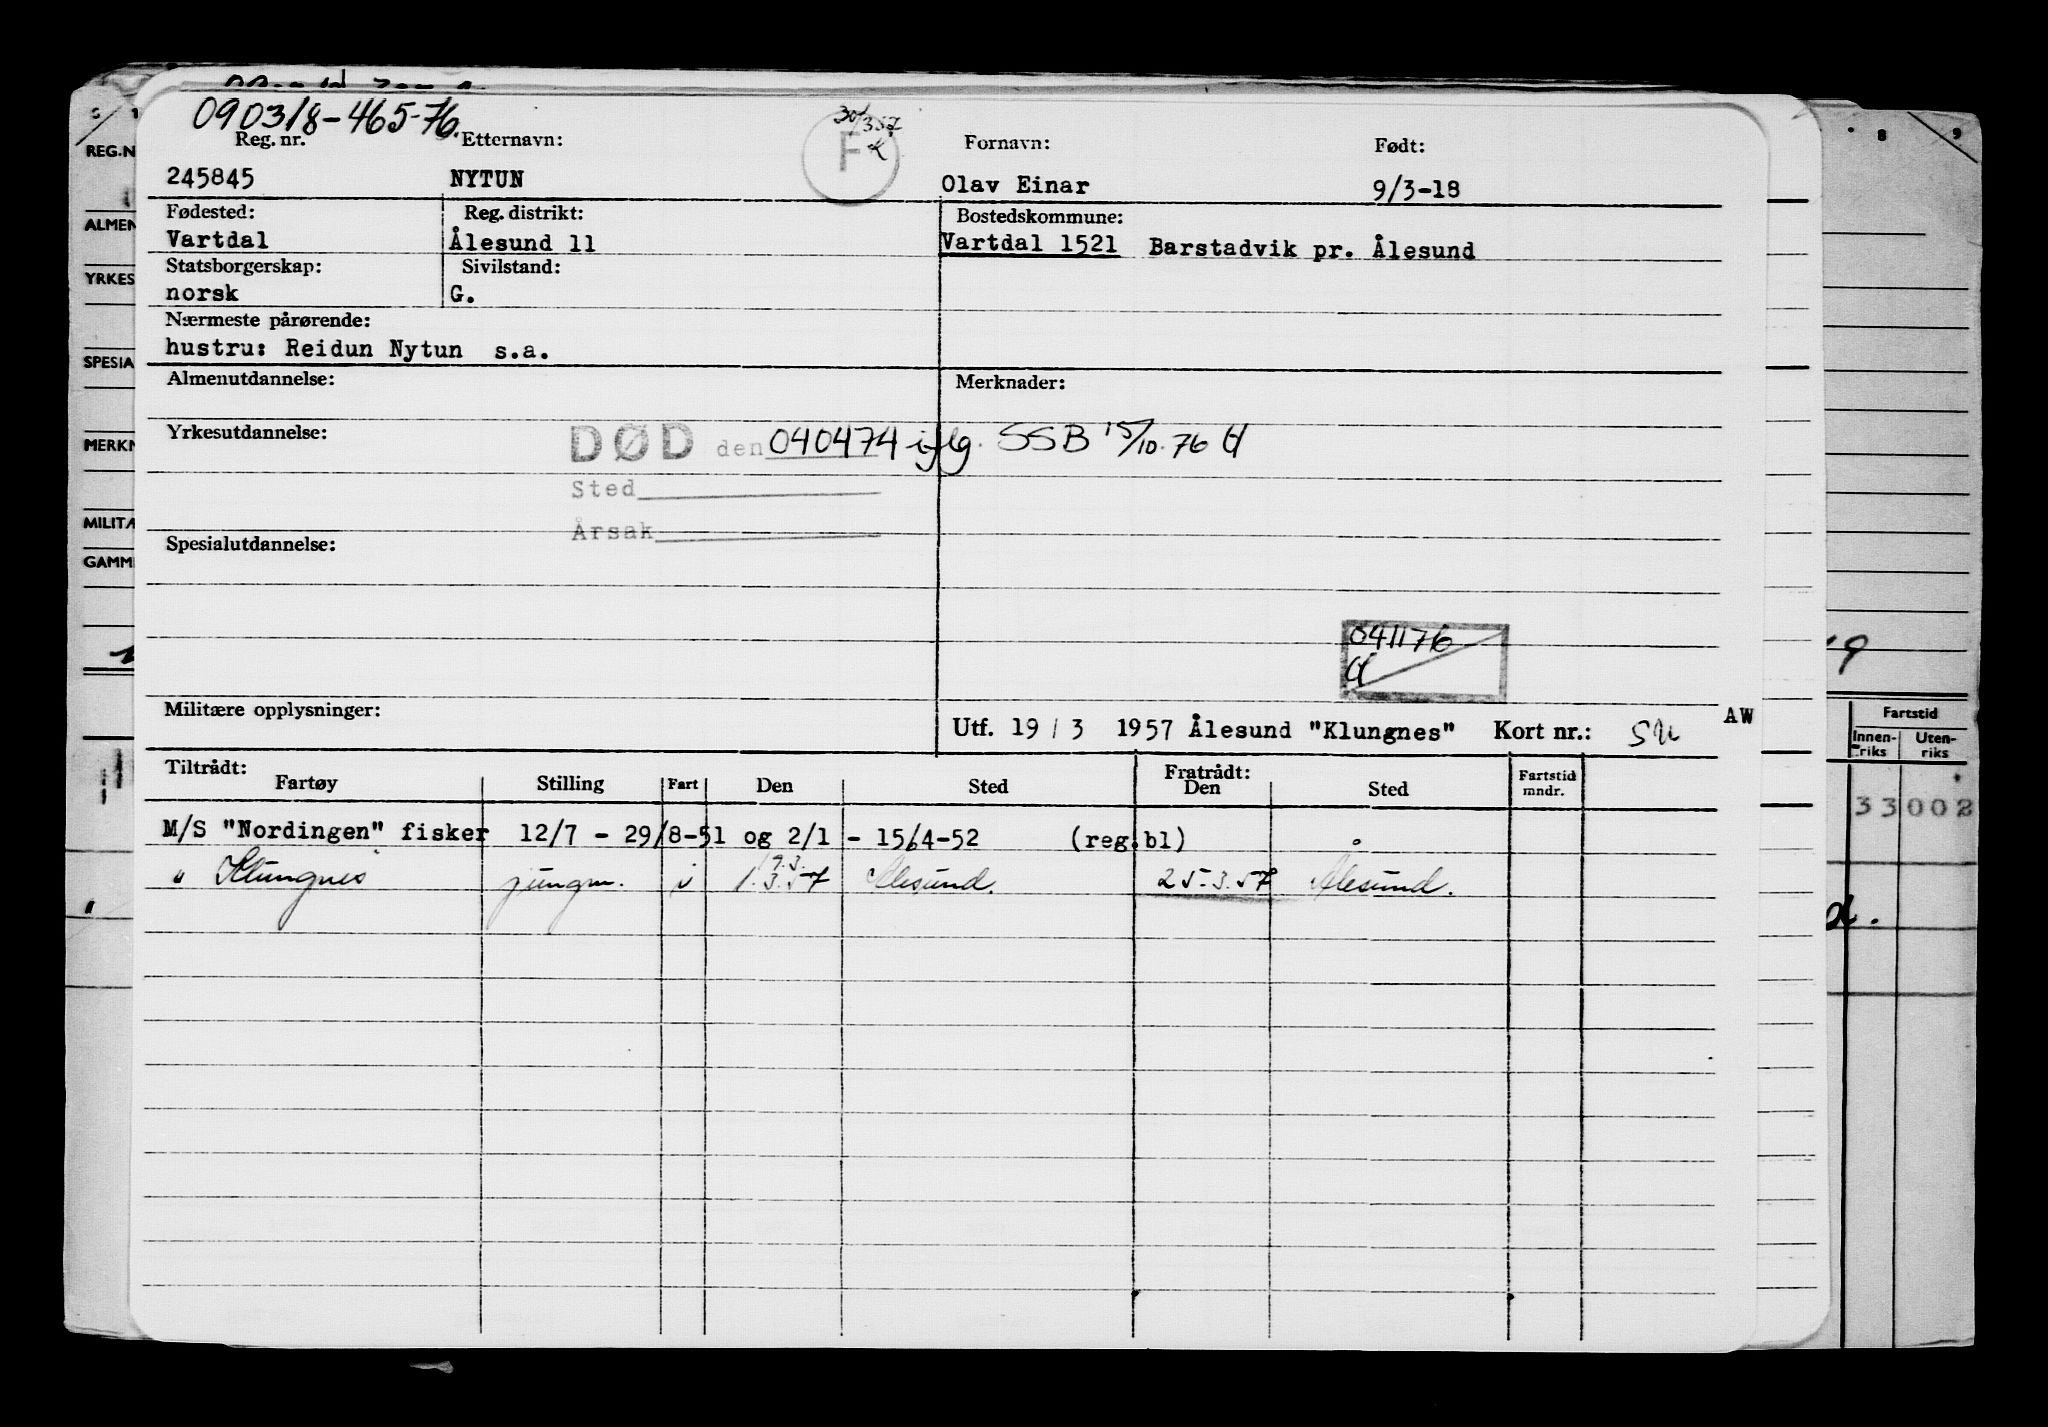 090318-465-76.
30/3 57
K
F
Reg. nr. Etternavn: Fornavn: Født:
245845 NYTUN Olav Einar 9/3-18
Fødested: Reg. distrikt: Bostedskommune:
Vartdal Ålesund 11 Vartdal 1521 Barstadvik pr. Ålesund
Statsborgerskap: Sivilstand:
norsk G.
Nærmeste pårørende:
hustru: Reidun Nytun s.a.
Almenutdannelse: Merknader:
Yrkesutdannelse: DØD den 040474 iflg. SSB 15/10.76
Sted
Årsak
Spesialutdannelse:
041176
Militære opplysninger: Utf. 19 / 3 1957 Ålesund "Klungnes" Kort nr.: AW
Tiltrådt: Fratrådt:
Fartøy Stilling Fart Den Sted Den Sted Fartstid mndr.
M/S "Nordingen" fisker 12/7 - 29/8-51 og 2/1 - 15/4-52 (reg.bl)
" Klungnes jungm. i 19.3.
1.3.57 Ålesund. 25.3.57 Ålesund.
REG.N
ALMEN
YRKES
SPESIA
MERKN
MILITÆ
GAMM
8 9
Fartstid
Innen-riks Uten-riks
33 002